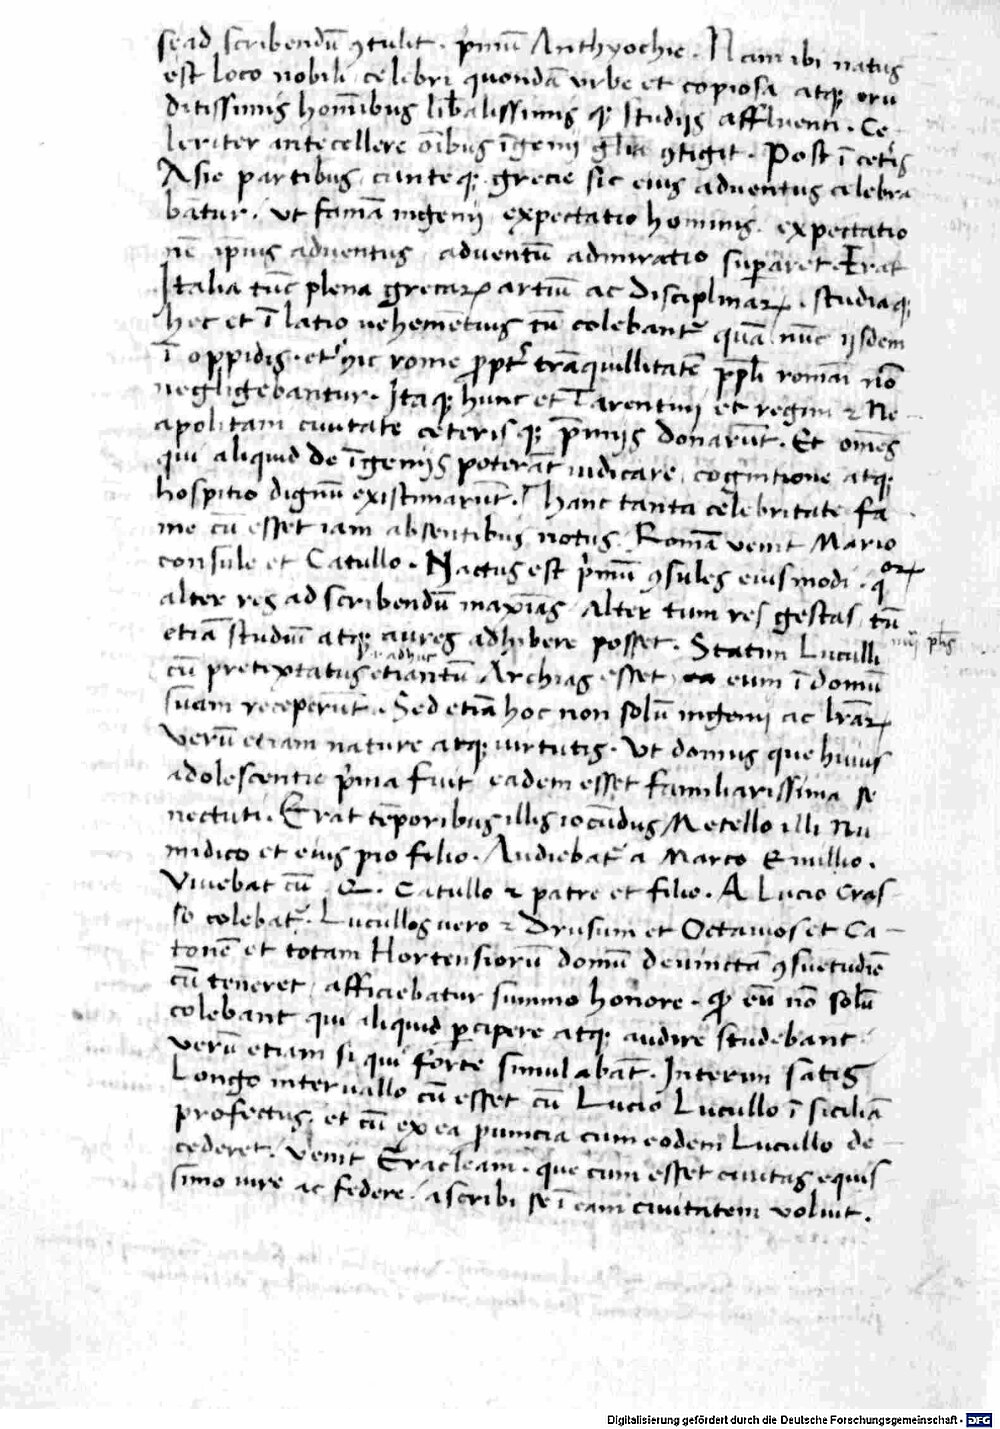 se ad scribendū ꝯtulit. p̄mū Anthyochie. Nam ibi natus
est loco nobili, celebri quondā vrbe et copiosa atqꝫ eru
ditissimis hominībus lib̄alissimis qꝫ studijs affluenti. Ce-
leriter antecellere oībus īgenij gl̄ia ꝯtigit. Post ī cet̄is
Asie partibus, cunteqꝫ grecie sic eius aduentus celebra
bātur, vt famā ingenij expectatio hominis, expectatio
nē ip̄ius aduentus, aduentū admiratio sup̄aret. Erat
Italia tūc plena grecaꝝ artiū ac disciplinaꝝ. studiaqꝫ
hec et ī latio uehemētius tū colebant᷑ quā nūc ijsdem
ī oppidis. et hic rome ꝓpt᷑ trāquillitatē pp̄li romāi nō
negligebantur. Itaqꝫ hunc et Tarentini et regini ⁊ Ne-
apolitani ciuitate ceterisqꝫ p̄mijs donarūt. Et omēs
qui aliquid de īgenijs poterāt iudicare, cognitione atqꝫ
hospitio dignū existimarūt. Hanc tanta celebritate fa
me cū esset iam absentibus notus. Romā venit Mario
consule et Catullo. Nactus est p̄mū ꝯsules eiusmodi. qoꝝ
alter res ad scribendū maxīas, Alter tum res gestas, tū
etiā studiū atqꝫ aures adhibere posset. Statim Luculli
cū pretixtatus etiantū adhuc Archias esset, eum ī domū
suam receperūt. Sed etiā hoc non solū ingenij ac lr̄aꝝ
verū etiam nature atqꝫ uirtutis. Vt domus que huius
adolescentie p̄ma fuit eadem esset familiarissima se
nectuti. Erat tēporibus illis iocūdus Metello illi Nu
midico et eius pio filio. Audiebat᷑ a Marco Emilio.
Viuebat cū Q. Catullo ⁊ patre et filio. A Lucio Cras-
so colebat᷑. Lucullos uero ⁊ Drusum et Octauios et Ca-
tonē et totam Hortensiorū domū deuinctā ꝯsuetudīe
cū teneret, afficiebatur summo honore. qꝫ eū nō solū
colebant qui aliquid ꝑcipere atqꝫ audire studebant
verū etiam si qui forte simulabāt. Interim satis
Longo interuallo cū esset cū Lucio Lucullo ī siciliā
profectus, et cū ex ea ꝓuincia cum eodem Lucullo de-
cederet, venit Eracleam. que cum esset ciuitas equis
simo iure ac federe, ascribi se ī eam ciuitatem voluit.
Digitalisierung gefördert durch die Deutsche Forschungsgemeinschaft - DFG